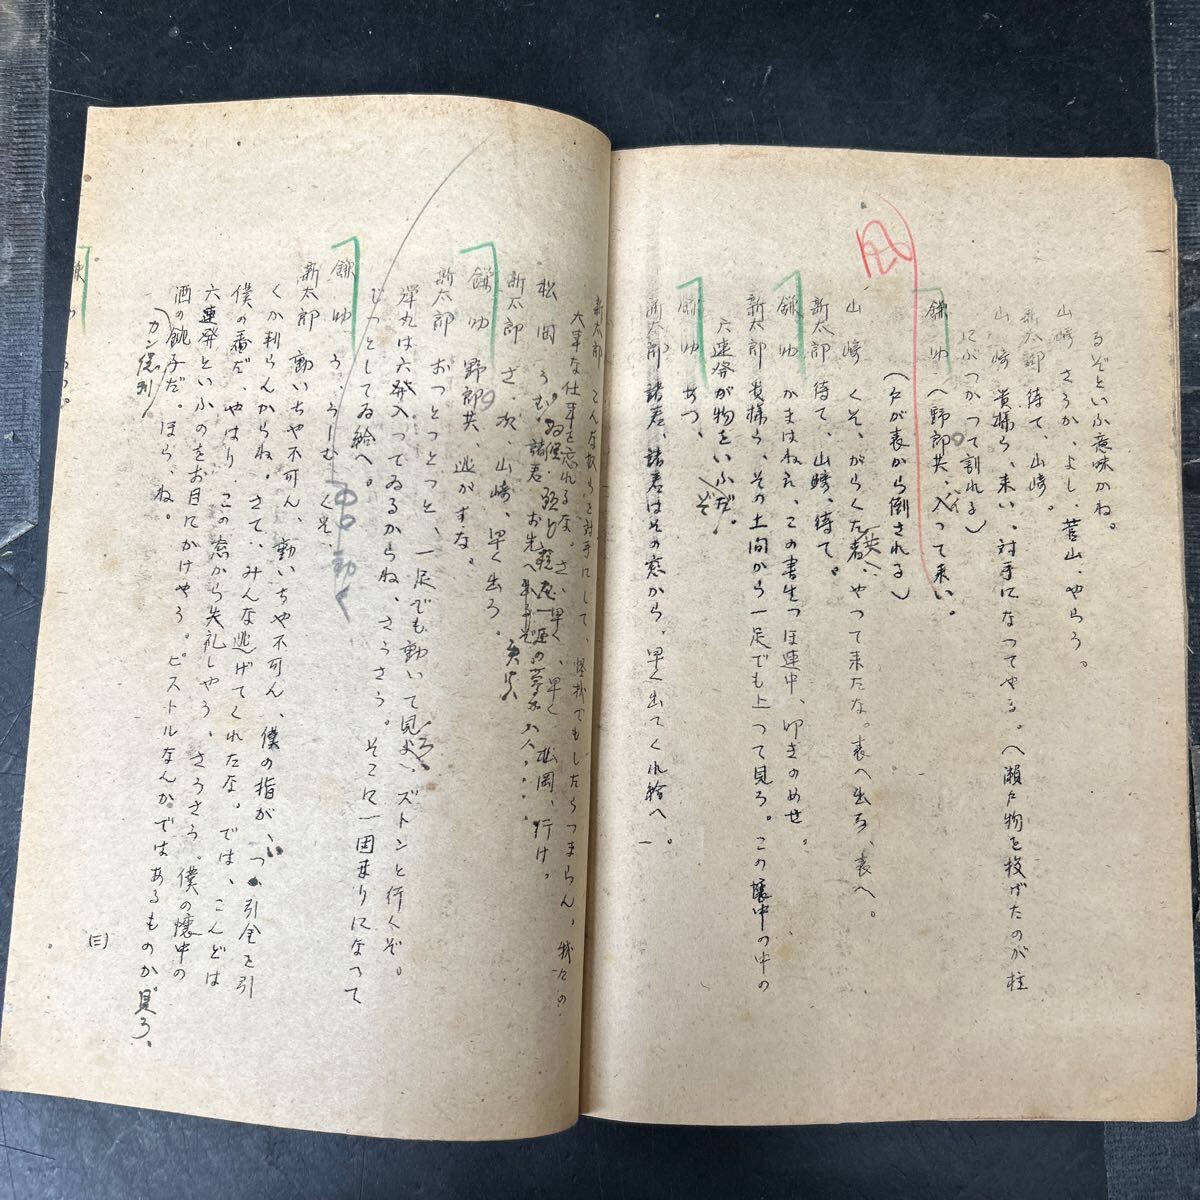 るぞといふ意味かね。
山崎 さうか、よし、菅山、やらう。
新太郎 待て、山崎。
山崎 貴様ら、来い、対手になつてやる。(瀬戸物を投げたのが柱
にぶつかつて割れる)
鎌助 へ野郎共、入つて来い。
(戸が表から倒される)
山崎 くそ、がらくた者共、やつて来たな。表へ出ろ、表へ。
新太郎 待て、山崎、待て。
鎌助 かまはねえ、この書生つぽ連中、叩きのめせ。
新太郎 貴様ら、その土間から一足でも上つて見ろ。この懐中の中の
六連発が物をいふぞ。
鎌助 あつ、
新太郎 諸君、諸君はその窓から、早く出てくれ給へ。
新太郎 こんな奴らを対手にして、怪我でもしたらつまらん。我々の
大事な仕事を忘れるな。さ、早く、早く、松岡、行け。
松岡 うむ、諸君、お先へ
新太郎 さ、次、山崎、早く出ろ。
鎌助 野郎共、逃がすな。
新太郎 おつとつとつと、一足でも動いて見ろ、ズトンと行くぞ。
弾丸は六発入つてゐるからね、さうさう。そこに一固まりになつて
じつとしてゐ給へ。
鎌助 う、うーむ、くそ、
中の動く
新太郎 動いちや不可ん、動いちや不可ん、僕の指が、つい引金を引
くか判らんからね。さて、みんな逃げてくれたな。では、こんどは
僕の番だ。やはり、この窓から失礼しやう、さうさう。僕の懐中の
六連発といふのをお目にかけやう。ピストルなんかではあるものか。見ろ、
酒の銚子だ。ほら、ね。
(三)